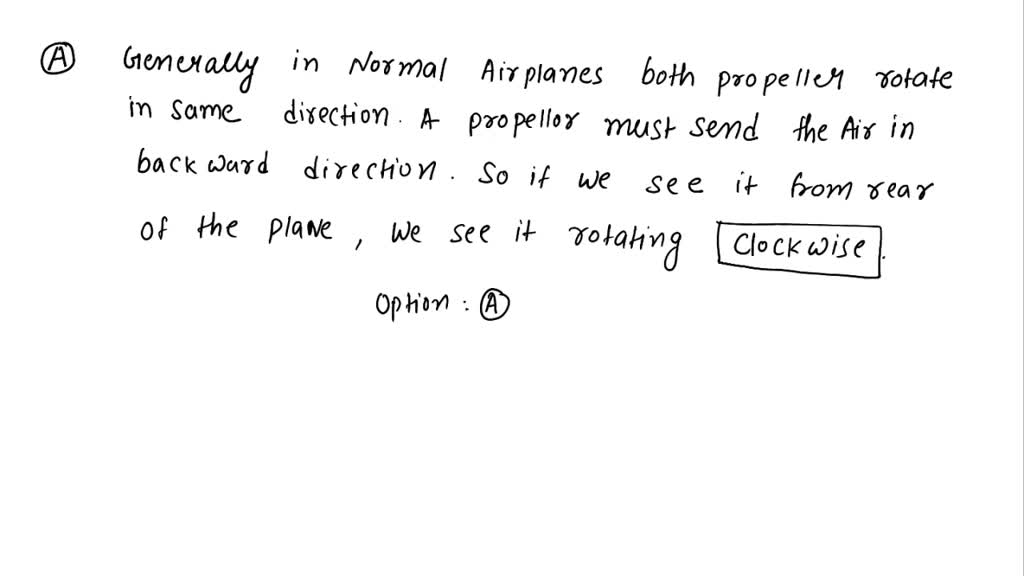 Ⓐ Generally in Normal Airplanes both propeller rotate
in same direction. A propellor must send the Air in
backward direction. So if we see it from rear
of the plane, we see it rotating Clockwise.
Option: Ⓐ